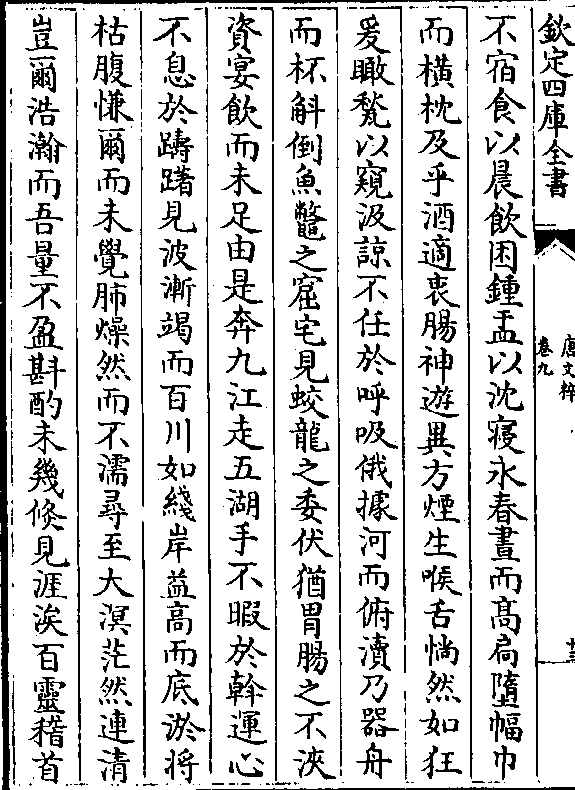 欽定四庫全書
唐文粹
卷九
十三
不宿食以晨飲困鍾盂以沈寢永春晝而高扃墮幅巾
而橫枕及乎酒適衷腸神遊異方煙生喉舌惝然如狂
爰瞰甃以窺汲諒不任於呼吸俄據河而俯瀆乃器舟
而杯斛倒魚鼈之窟宅見蛟龍之委伏猶胃腸之不浹
資宴飲而未足由是奔九江走五湖手不暇於斡運心
不息於躊躇見波漸竭而百川如綫岸益高而底淤將
枯腹慊爾而未覺肺燥然而不濡尋至大溟茫然連清
豈爾浩瀚而吾量不盈斟酌未幾倐見涯涘百靈稽首